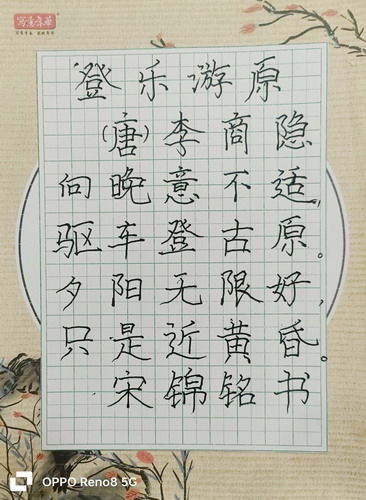 写意年华
登乐游原
(唐)李商隐
向晚意不适,
驱车登古原。
夕阳无限好,
只是近黄昏。
宋锦铭书
OPPO Reno8 5G